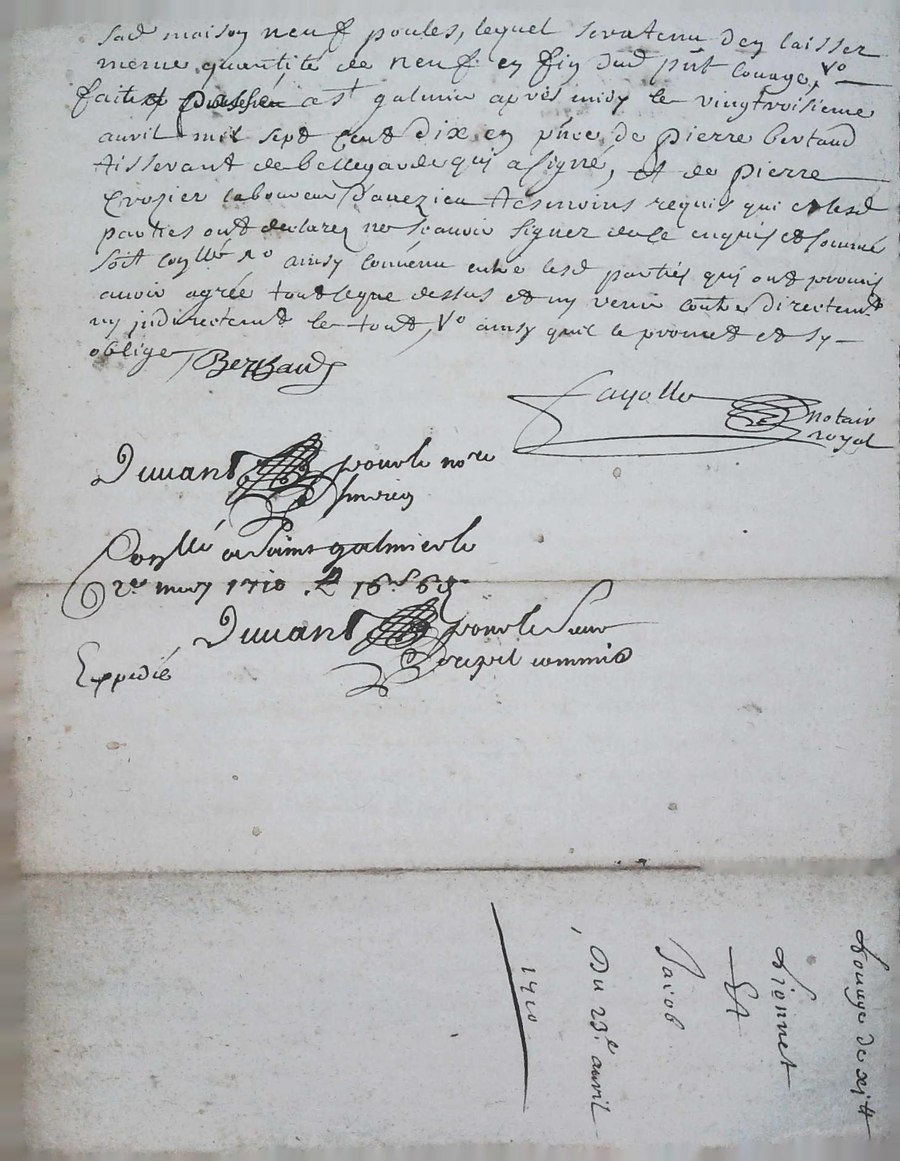 sad maison neuf poules, lequel seratenu den laisser
meme quantité de neuf en fin dud pnt louage, Vo
fait et passé a st galmier apres midy le vingtroisieme
avril mil sept cent dix en pnce de pierre bertaud
tisserant de bellegarde qui a signé, et de pierre
Crozier laboureur d'avezieu tesmoins requis qui et lesd
parties ont declarez ne scavoir signer de ce enquis et sommé
soit coyllé Vo ainsy convenu entre lesd parties qui ont promis
avoir agrée tout ce que dessus et ny venir contre directemt
ny indirectemt le tout, Vo ainsy quil le promet et sy
oblige Bertaud
fayolle notair
royal
Duvant pour le nore
Conllé a Saint galmier le
2e may 1710
Duvant pour le sieur
commis
Expedié
Louage de
Lionnet
Et
Jacob
Du 23e avril
1710